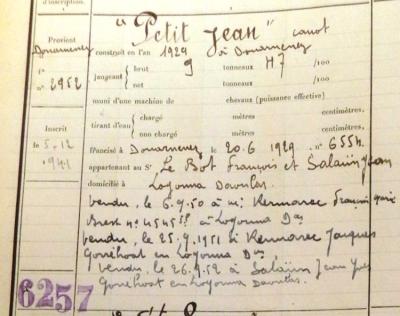 d'inscription.
"Petit Jean" canot
Provient
Douarnenez
construit en l'an 1929 à Douarnenez
fo
n° 2952
jaugeant
brut 9 tonneaux 47 /100
net tonneaux /100
muni d'une machine de chevaux (puissance effective)
tirant d'eau
chargé mètres centimètres.
non chargé mètres centimètres.
Inscrit
le 5.12
1941
francisé à Douarnenez le 20.6 1929 n° 6554
appartenant au Sr Le Bot François et Salaün Jean
domicilié à Logonna Daoulas.
vendu, le 6.9.50 à Mr Kermarec François
Brest n° 4545 à Logonna Das
vendu, le 25.9.1951 à Kermarec Jacques
Gorréhoat en Logonna Das
vendu le 26.9.52 à Salaün Jean Yves
Gorréhoat en Logonna Daoulas.
6257